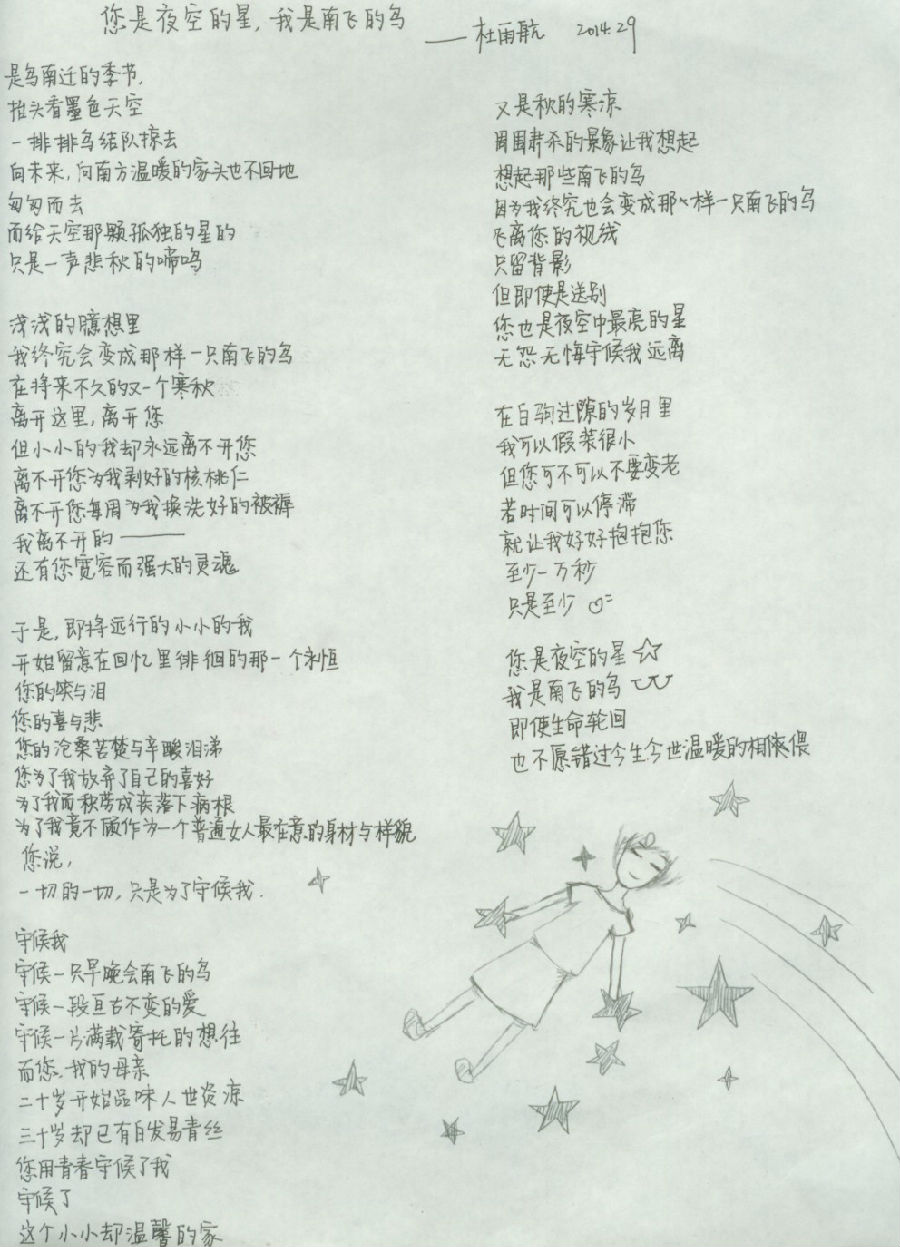 您是夜空的星,我是南飞的鸟
——杜雨航 2014.2.9
是鸟南迁的季节,
抬头看墨色天空
一排排鸟结队掠去
向未来,向南方温暖的家头也不回地
匆匆而去
而给天空那颗孤独的星的
只是一声悲秋的啼鸣
浅浅的臆想里
我终究会变成那样一只南飞的鸟
在将来不久的又一个寒秋
离开这里,离开您
但小小的我却永远离不开您
离不开您为我剥好的核桃仁
离不开您每周为我换洗好的被褥
我离不开的——
还有您宽容而强大的灵魂
于是,即将远行的小小的我
开始留意在回忆里徘徊的那一个永恒
您的笑与泪
您的喜与悲
您的沧桑苦楚与辛酸泪涕
您为了我放弃了自己的喜好
为了我而积劳成疾落下病根
为了我竟不顾作为一个普通女人最在意的身材与样貌
您说,
一切的一切,只是为了守候我.
守候我
守候一只早晚会南飞的鸟
守候一段亘古不变的爱
守候一片满载寄托的想往
而您,我的母亲
二十岁开始品味人世炎凉
三十岁却已有白发易青丝
您用青春守候了我
守候了
这个小小却温馨的家
又是秋的寒凉
周围肃杀的景象让我想起
想起那些南飞的鸟
因为我终究也会变成那样一只南飞的鸟
飞离您的视线
只留背影
但即使是送别
您也是夜空中最亮的星
无怨无悔守候我远离
在白驹过隙的岁月里
我可以假装很小
但您可不可以不要变老
若时间可以停滞
就让我好好抱抱您
至少一万秒
只是至少
您是夜空的星
我是南飞的鸟
即使生命轮回
也不愿错过今生今世温暖的相依偎